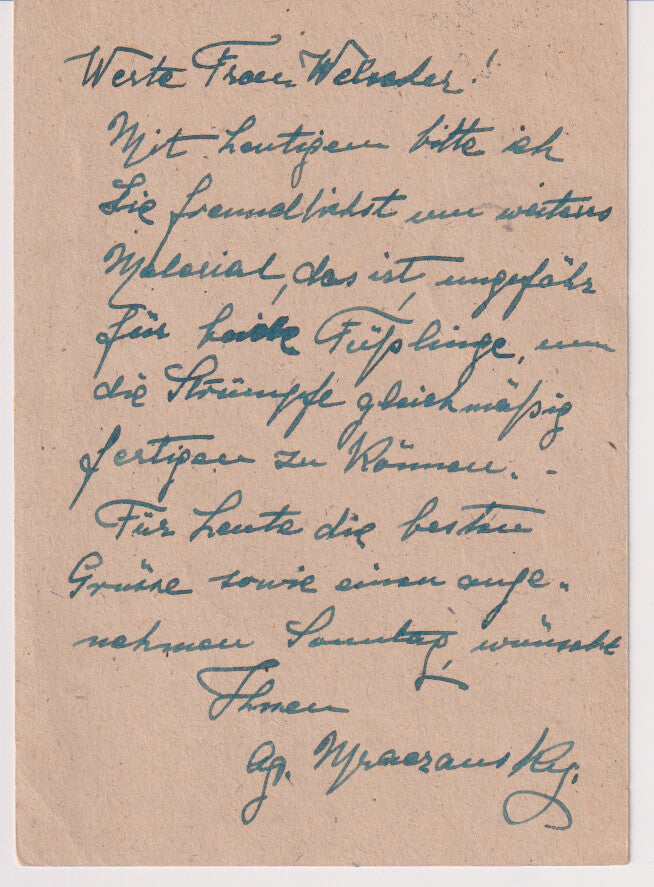 Werte Frau Welseder!
Mit heutigem bitte ich
Sie freundlichst um weiteres
Material, das ist, ungefähr
für beide Füßlinge, um
die Strümpfe gleichmäßig
fertigen zu können. -
Für heute die besten
Grüsse sowie einen ange-
nehmen Sonntag, wünscht
Ihnen
Ag.